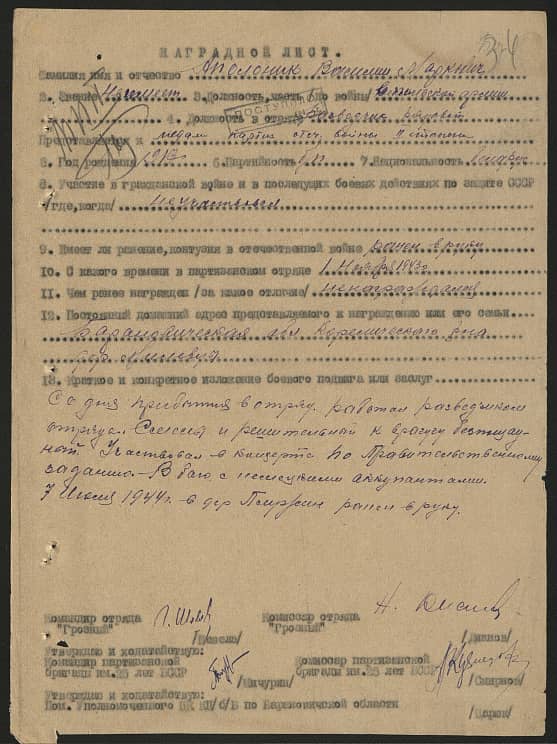 НАГРАДНОЙ ЛИСТ.
Фамилия имя и отчество Аполоник Василий Маркович
2. Звание 3. Должность, часть /до войны/
4. Должность в отряде
Представляется к медали Партиз. отеч. войны II степени
5. Год рождения 6. Партийность б/п 7. Национальность
8. Участие в гражданской войне и в последущих боевых действиях по защите СССР
/где, когда/ не участвовал
9. Имеет ли ранение, контузии в отечественной войне ранен в руку
10. С какого времени в партизанском отряде 1 Ноября 1943г.
11. Чем ранее награжден /за какое отличие/
12. Постоянный домашний адрес представляемого к награждению или его семьи
Барановическая обл Кореличского р-на
дер.
13. Краткое и конкретное изложение боевого подвига или заслуг
Со дня прибытия в отряд работал разведчиком
отряда. Смелый и решительный к врагу беспощад-
ный. Участвовал в концерте по Правительственному
заданию. В бою с немецкими аккупантами
7 Июля 1944г. в дер ранен в руку.
Командир отряда Комиссар отряда
"Грозный" "Грозный"
Утверждаю и ходатайствую:
Командир партизанской Комиссар партизанской
бригады им. 25 лет БССР бригады им. 25 лет БССР
/Мичурин/ /Смирнов/
Утверждаю и ходатайствую:
Пом. Уполномоченного ЦК КП/б/Б по Барановичской области